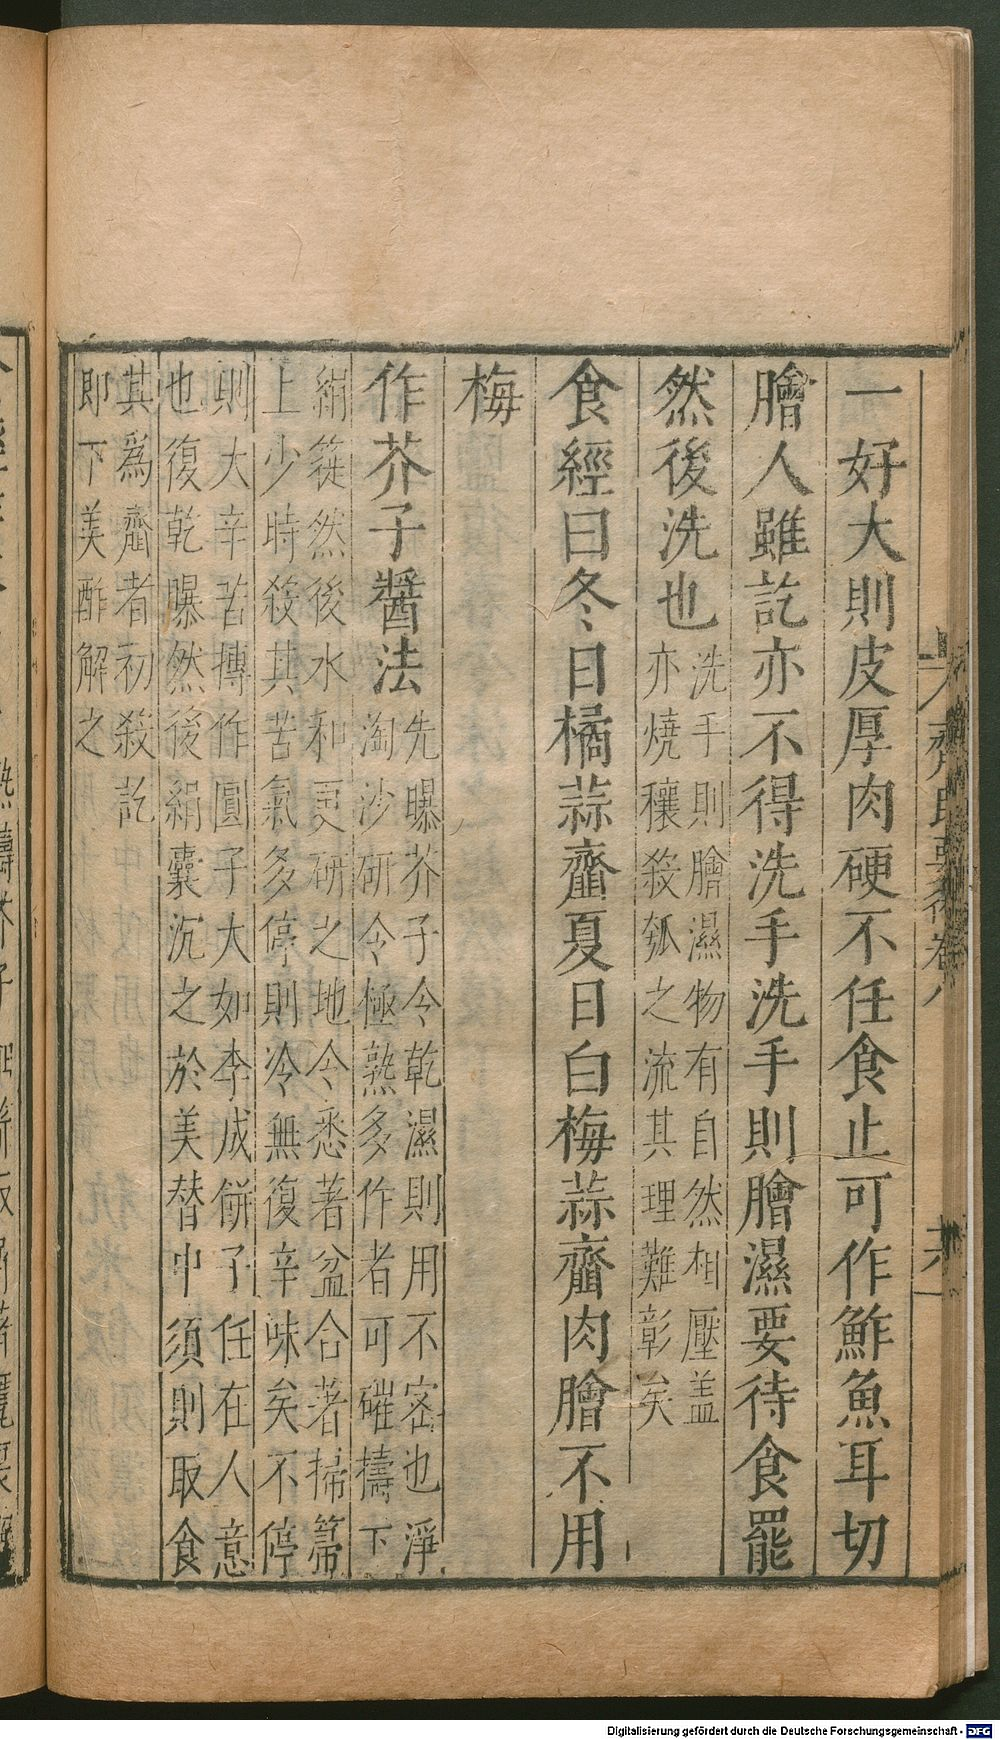 齊民要術卷八
一好大則皮厚肉硬不任食止可作鮓魚耳切
膾人雖訖亦不得洗手洗手則膾濕要待食罷
然後洗也洗手則膾濕物有自然相壓盖
亦燒穰殺瓠之流其理難彰矣
食經曰冬日橘蒜齏夏日白梅蒜齏肉膾不用
梅
作芥子醬法先曝芥子令乾濕則用不密也淨
淘沙研令極熟多作者可碓擣下
絹簁然後水和更研之地令悉著盆合著掃箒
上少時殺其苦氣多停則冷無復辛味矣不停
則大辛苦摶作圓子大如李成餅子任在人意
也復乾曝然後絹囊沉之於美替中須則取食
其爲齏者初殺訖
即下美酢解之
Digitalisierung gefördert durch die Deutsche Forschungsgemeinschaft - DFG